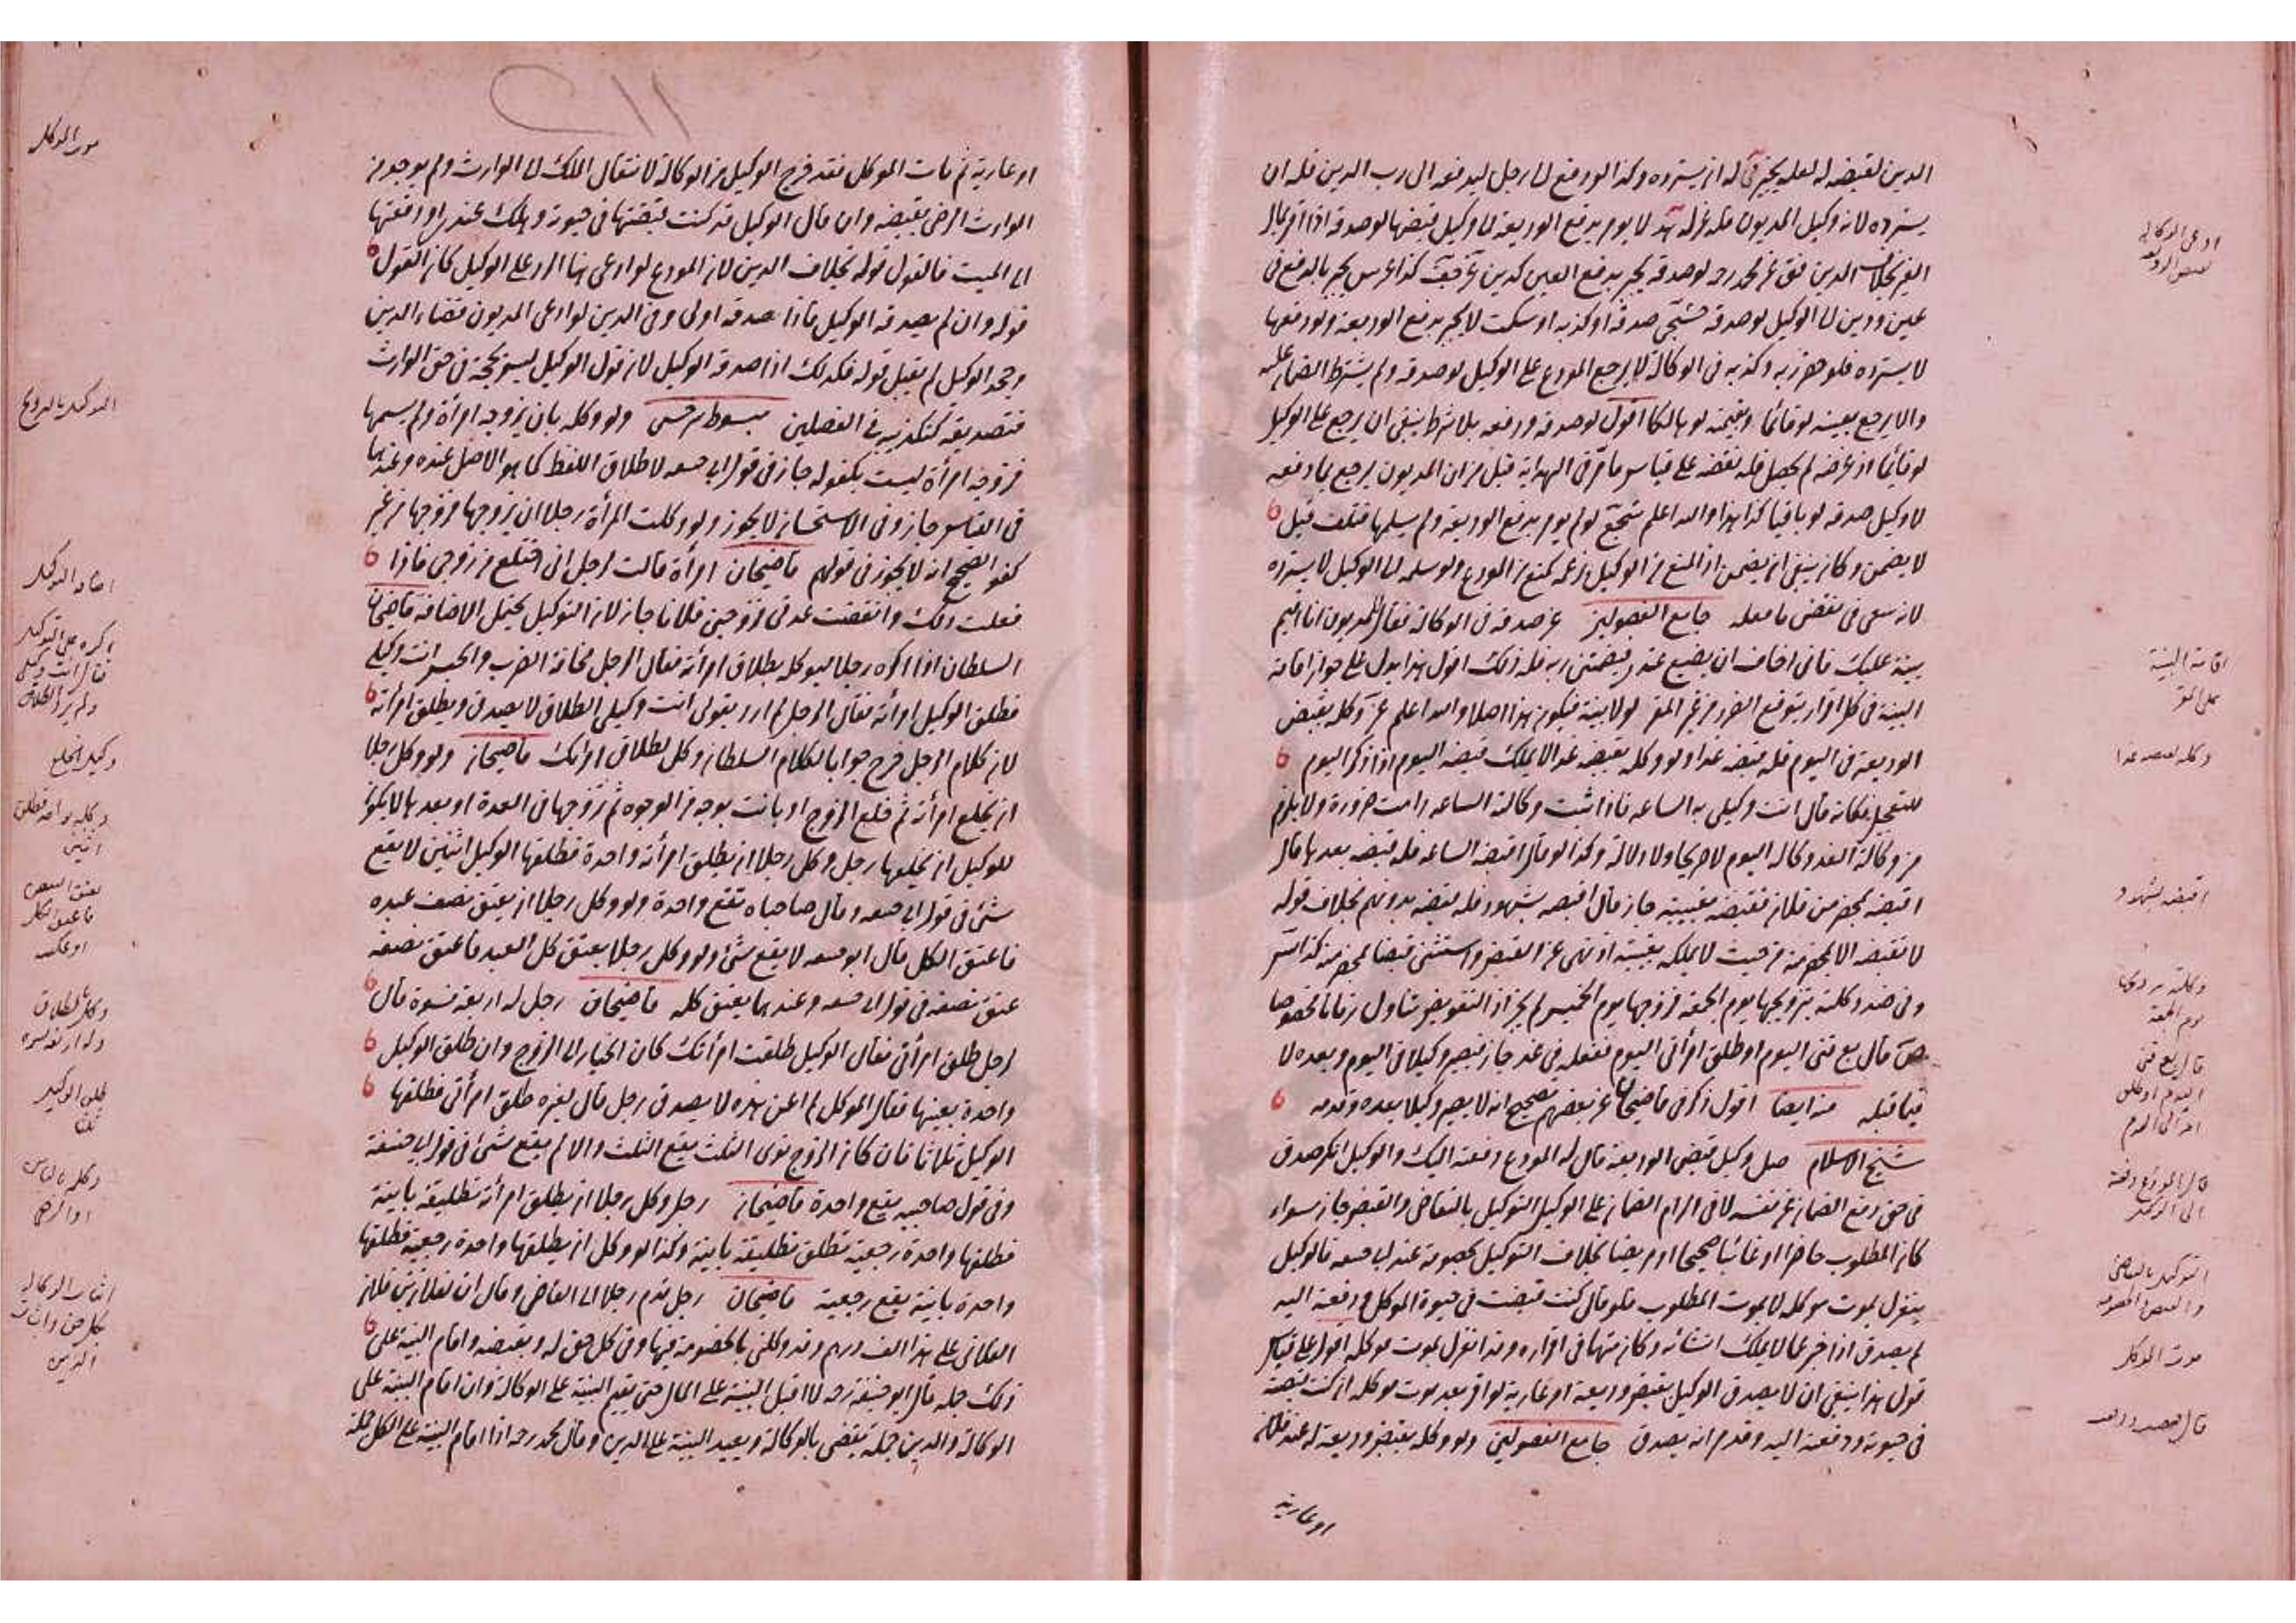 الدين لقبضه له لعله يجيز في له ان يسترده وكذا لو دفع الى رجل ليدفعه الى رب الدين فله ان
يسترده لانه وكيل المديون فله عزله لا يؤمر بدفع الوديعة الى وكيل قبضها لو صدقه اذا اقر بمال
الغير بخلاف الدين فق عن محمد رحه لو صدقه يجبر بدفع العين كدين كذا عن س يجبر بالدفع في
عين ودين الى الوكيل لو صدقه صدقه او كذبه او سكت لا يجبر بدفع الوديعة ولو دفعها
لا يسترده فلو حضر ربه وكذبه في الوكالة لا يرجع المودع على الوكيل لو صدقه ولم يشترط الضمان عليه
والا يرجع بعينه لو قائما وبقيمته لو هالكا اقول لو صدقه ودفعه بلا شرط ينبغي ان يرجع على الوكيل
لو قائما اذ غرضه لم يحصل فله نقضه على قياس ما مر في الهداية قبل من ان المديون يرجع بما دفعه
لا وكيل صدقه لو باقيا كذا هذا والله اعلم لو لم يؤمر بدفع الوديعة ولم يسلمها فتلف قيل
لا يضمن وكان ينبغي ان يضمن اذ المنع من الوكيل بزعمه كمنع من المودع ولو سلمه الى الوكيل لا يسترده
لانه سعى في نقض ما فعله جامع الفصولين صدقه في الوكالة فقال المديون انا اقيم
بينة عليك فاني اخاف ان يضيع عندك فتضمنني ربه فله ذلك اقول هذا يدل على جواز اقامة
البينة في كل اقرار يتوقع الضرر من غير المقر لولا بينة فيكون هذا اصلا والله اعلم وكله بقبض
الوديعة في اليوم فله قبضه غدا ولو وكله بقبضه غدا لا يملك قبضه اليوم اذ ذكر اليوم
للتعجيل فكانه قال انت وكيلي به الساعة فاذا ثبت وكالة الساعة دامت ضرورة ولا يلزم
من وكالة الغد وكالة اليوم لا صريحا ولا دلالة وكذا لو قال اقبضه الساعة فله قبضه بعدها قال
اقبضه بمحضر من فلان فقبضه بغيبته جاز قال اقبضه بشهود فله قبضه بدونهم بخلاف قوله
لا تقبضه الا بمحضر منه حيث لا يملكه بغيبته اذ نهى عن القبض واستثنى قبضا بمحضر منه كذا
وفي ضد وكلته بتزويجها يوم الجمعة فزوجها يوم الخميس لم يجز اذ التفويض تناول زمانا مخصوصا
قال بع قني اليوم او طلق امرأتي اليوم ففعله في غد جاز فيصير وكيلا في اليوم وبعده لا
فيما قبله منه ايضا اقول ذكر في قاضيخان عن بعضهم تصحيح انه لا يصير وكيلا بعده وقدمه
شيخ الاسلام وكيل قبض الوديعة قال له المودع دفعته اليك والوكيل انكر صدق
في حق دفع الضمان عن نفسه لا في الزام الضمان على الوكيل التوكيل بالتقاضي والقبض جاز سواء
كان المطلوب حاضرا او غائبا صحيحا او مريضا بخلاف التوكيل بخصومة عند ابي حنيفه فالوكيل
ينعزل بموت موكله لا بموت المطلوب فلو قال كنت قبضت في حيوة الموكل ودفعته اليه
لم يصدق اذ اخبر عما لا يملك انشائه وكان متهما في اقراره وقد انعزل بموت موكله اقول على قياس
قوله هذا ينبغي ان لا يصدق الوكيل بقبض وديعة او عارية لو اقر بعد موت موكله انه كنت قبضته
في حيوته ودفعته اليه وقدم انه يصدق جامع الفصولين ولو وكله بقبض وديعة له عند فلان
او عارية
ادعى الوكالة
بقبض الوديعة
اقامة البينة
على المقر
وكله بقبضه غدا
اقبضه بشهود
وكلته بتزويجها
يوم الجمعة
قال بع قني
اليوم او طلق
امرأتي اليوم
قال المودع دفعته
الى الوكيل
التوكيل بالتقاضي
والقبض والخصومة
موت الموكل
او عارية ثم مات الموكل فقد خرج الوكيل من الوكالة لانتقال الملك الى الوارث ولم يوجد من
الوارث الرضى بقبضه وان قال الوكيل قد كنت قبضتها في حيوته وهلك عندي او دفعتها
الى الميت فالقول قوله بخلاف الدين لان المودع لو ادعى انها الرد على الوكيل كان القول
قوله وان لم يصدقه الوكيل فاذا صدقه اولى وفي الدين لو ادعى المديون قضاء الدين
وجحد الوكيل لم يقبل قوله فكذلك اذا صدقه الوكيل لان قول الوكيل ليس بحجة في حق الوارث
فتصديقه كتكذيبه في الفصلين مبسوط سرخسي ولو وكله بان يزوجه امرأة ولم يسمها
فزوجه امرأة ليست بكفو له جاز في قول ابي حنيفه لاطلاق اللفظ كما هو الاصل عنده وعندهما
في القياس جاز وفي الاستحسان لا يجوز ولو وكلت المرأة رجلا ان يزوجها فزوجها من غير
كفو الصحيح انه لا يجوز في قولهم قاضيخان امرأة قالت لرجل اني اختلع من زوجي فاذا
فعلت ذلك وانقضت عدتي فزوجني فلانا جاز لان التوكيل يحتمل الاضافة قاضيخان
السلطان اذا اكره رجلا ليوكله بطلاق امرأته فقال الرجل مخافة الضرب والحبس انت وكيلي
فطلق الوكيل امرأته فقال الرجل لم ارد بقولي انت وكيلي الطلاق لا يصدق ويطلق امرأته
لان كلام الرجل خرج جوابا لكلام السلطان وكل بطلاق امرأتك قاضيخان ولو وكل رجلا
ان يخلع امرأته ثم خلع الزوج او بانت بوجه من الوجوه ثم تزوجها في العدة او بعدها لا يكون
للوكيل ان يخلعها رجل وكل رجلا ان يطلق امرأته واحدة فطلقها الوكيل اثنتين لا يقع
شئ في قول ابي حنيفه وقال صاحباه تقع واحدة ولو وكل رجلا ان يعتق نصف عبده
فاعتق الكل قال ابو حنيفه لا يقع شئ ولو وكل رجلا يعتق كل العبد فاعتق نصفه
عتق نصفه في قول ابي حنيفه وعندهما يعتق كله قاضيخان رجل له اربعة نسوة قال
لرجل طلق امرأتي فقال الوكيل طلقت امرأتك كان الخيار الى الزوج وان طلق الوكيل
واحدة بعينها فقال الموكل لم اعن هذه لا يصدق رجل قال لغيره طلق امرأتي فطلقها
الوكيل ثلاثا فان كان الزوج نوى الثلث يقع الثلث والا لم يقع شئ في قول ابي حنيفة
وفي قول صاحبيه يقع واحدة قاضيخان رجل وكل رجلا ان يطلق امرأته تطليقة باينة
فطلقها واحدة رجعية تطلق تطليقة باينة وكذا لو وكل ان يطلقها واحدة رجعية فطلقها
واحدة باينة يقع رجعية قاضيخان رجل قدم رجلا الى القاضي وقال ان لفلان بن فلان
الفلاني على هذا الف درهم وقد وكلني بالخصومة فيها وفي كل حق له وبقبضه واقام البينة على
ذلك جملة قال ابو حنيفة رحه لا اقبل البينة على المال حتى يقيم البينة على الوكالة وان اقام البينة على
الوكالة والدين جملة يقضي بالوكالة ويعيد البينة على الدين وقال محمد رحه اذا اقام البينة على الكل جملة
موت الموكل
التوكيل بالتزويج
اضافة التوكيل
اكره على التوكيل
فقال انت وكيلي
ولم يرد الطلاق
وكيل الخلع
وكله بواحدة فطلق
اثنتين
يعتق النصف
فاعتق الكل
او عكسه
وكل بطلاق
وله اربعة نسوة
طلق الوكيل
ثلثا
وكله بالباين
او الرجعي
اثبات الوكالة
بكل حق واثبات
الدين